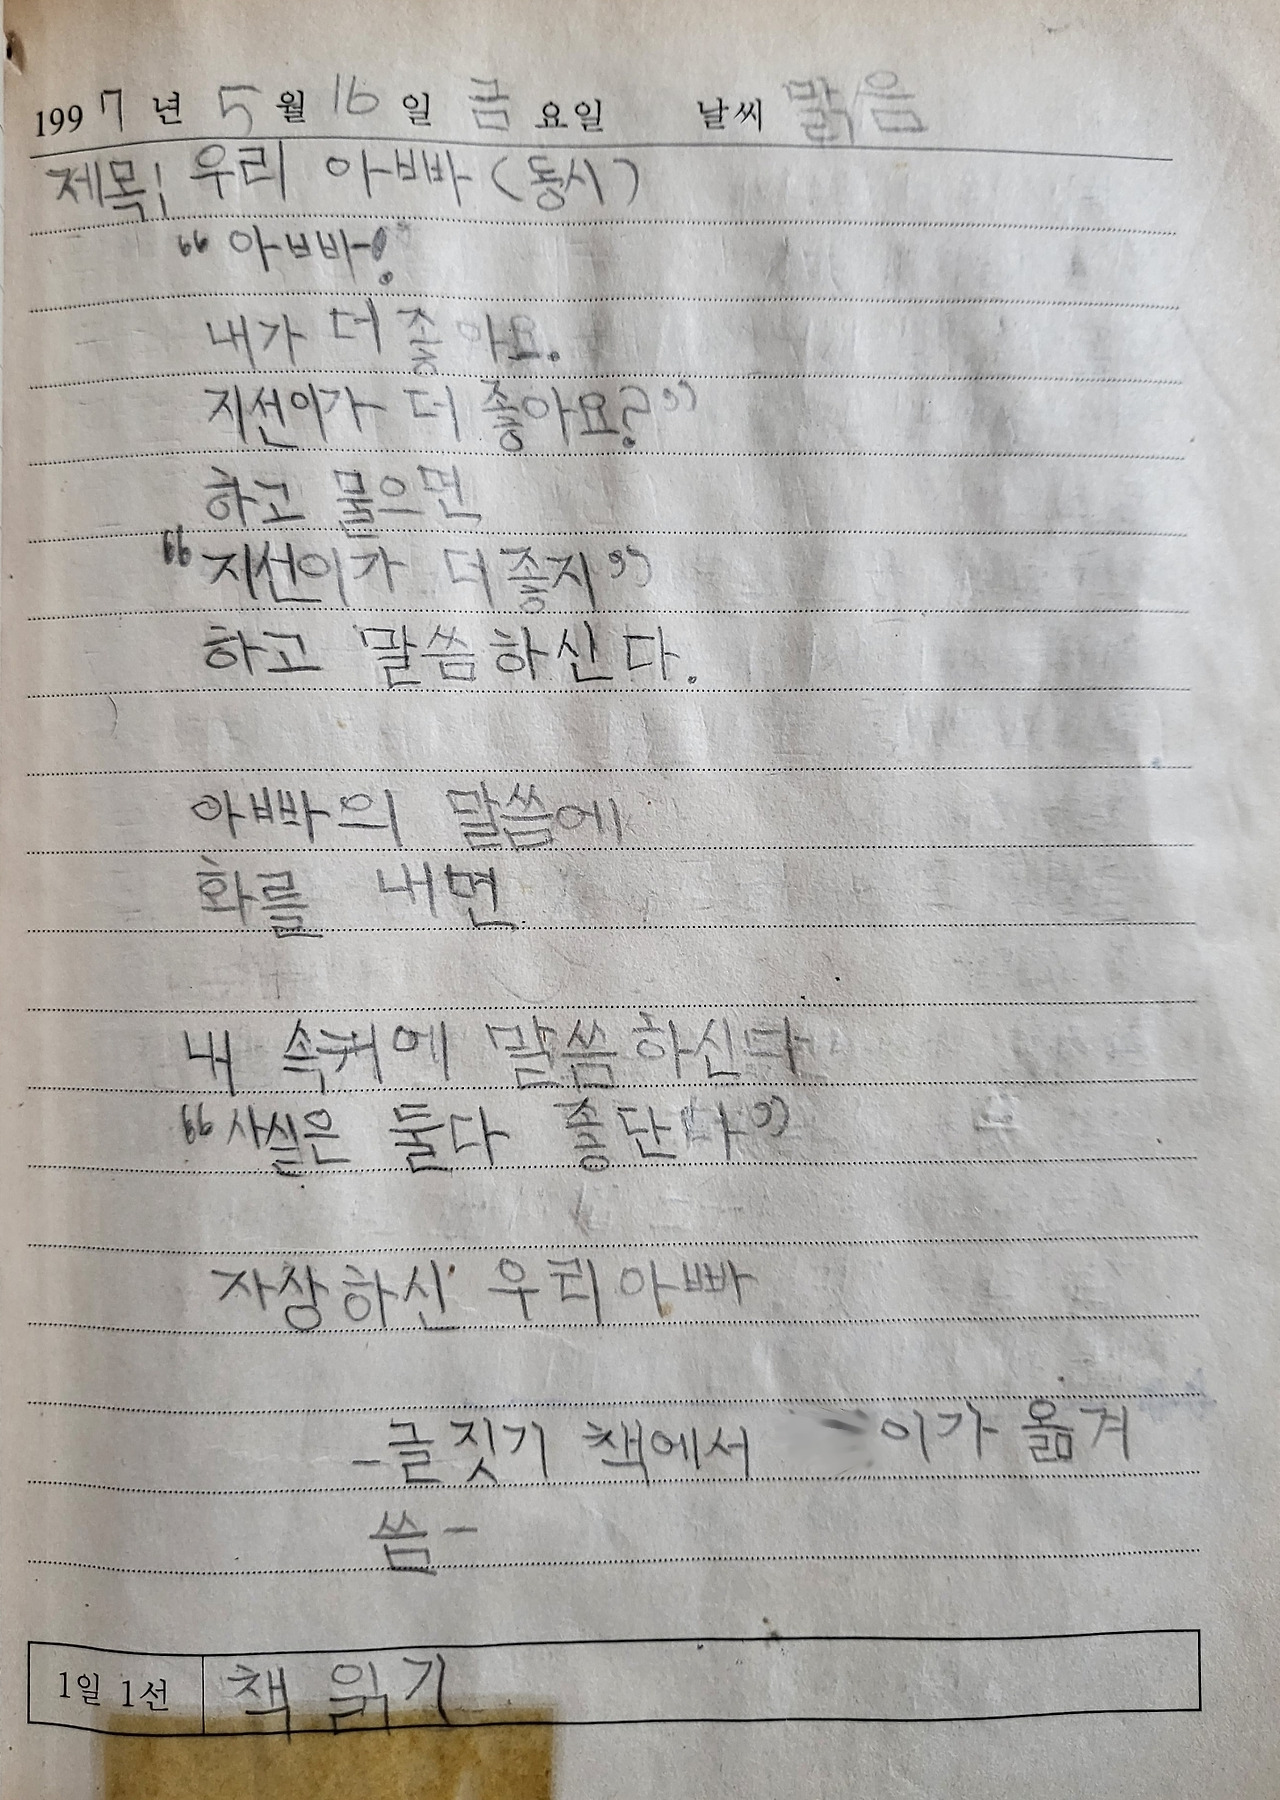 1997년 5월 16일 금요일 날씨 맑음
제목! 우리 아빠 (동시)
"아빠!
내가 더 좋아요.
지선이가 더 좋아요?"
하고 물으면
"지선이가 더 좋지"
하고 말씀하신다.
아빠의 말씀에
화를 내면
내 속귀에 말씀하신다
"사실은 둘다 좋단다"
자상하신 우리 아빠
-글짓기 책에서 이가 옮겨
씀-
1일 1선 책 읽기